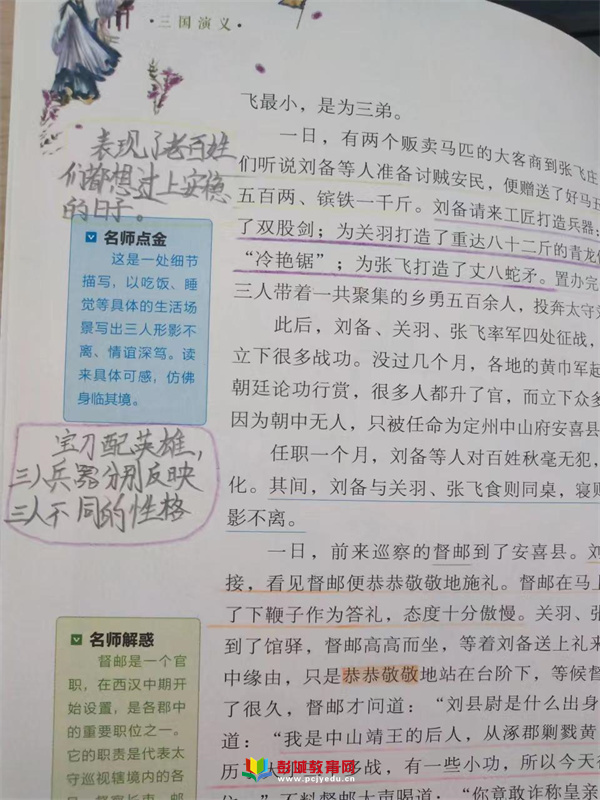 ·三国演义·
飞最小，是为三弟。
一日，有两个贩卖马匹的大客商到张飞庄
们听说刘备等人准备讨贼安民，便赠送了好马五
五百两、镔铁一千斤。刘备请来工匠打造兵器：
了双股剑；为关羽打造了重达八十二斤的青龙
“冷艳锯”；为张飞打造了丈八蛇矛。置办完
三人带着一共聚集的乡勇五百余人，投奔太守
此后，刘备、关羽、张飞率军四处征战，
立下很多战功。没过几个月，各地的黄巾军
朝廷论功行赏，很多人都升了官，而立下众多
因为朝中无人，只被任命为定州中山府安喜县
任职一个月，刘备等人对百姓秋毫无犯，
化。其间，刘备与关羽、张飞食则同桌，寝
影不离。
一日，前来巡察的督邮到了安喜县。
接，看见督邮便恭恭敬敬地施礼。督邮在马
了下鞭子作为答礼，态度十分傲慢。关羽、
到了馆驿，督邮高高而坐，等着刘备送上礼
中缘由，只是恭恭敬敬地站在台阶下，等候
了很久，督邮才问道：“刘县尉是什么出身
道：“我是中山靖王的后人，从涿郡剿戮黄
历 多战，有一些小功，所以今天
不料督邮大声喝道：“你竟敢诈称皇亲
表现了老百姓
们都想过上安稳
的日子。
名师点金
这是一处细节
描写，以吃饭、睡
觉等具体的生活场
景写出三人形影不
离、情谊深笃。读
来具体可感，仿佛
身临其境。
宝刀配英雄，
三人兵器分别反映
三人不同的性格
名师解惑
督邮是一个官
职，在西汉中期开
始设置，是各郡中
的重要职位之一。
它的职责是代表太
守巡视辖境内的各
彭城教育网
www.pcjyedu.cn